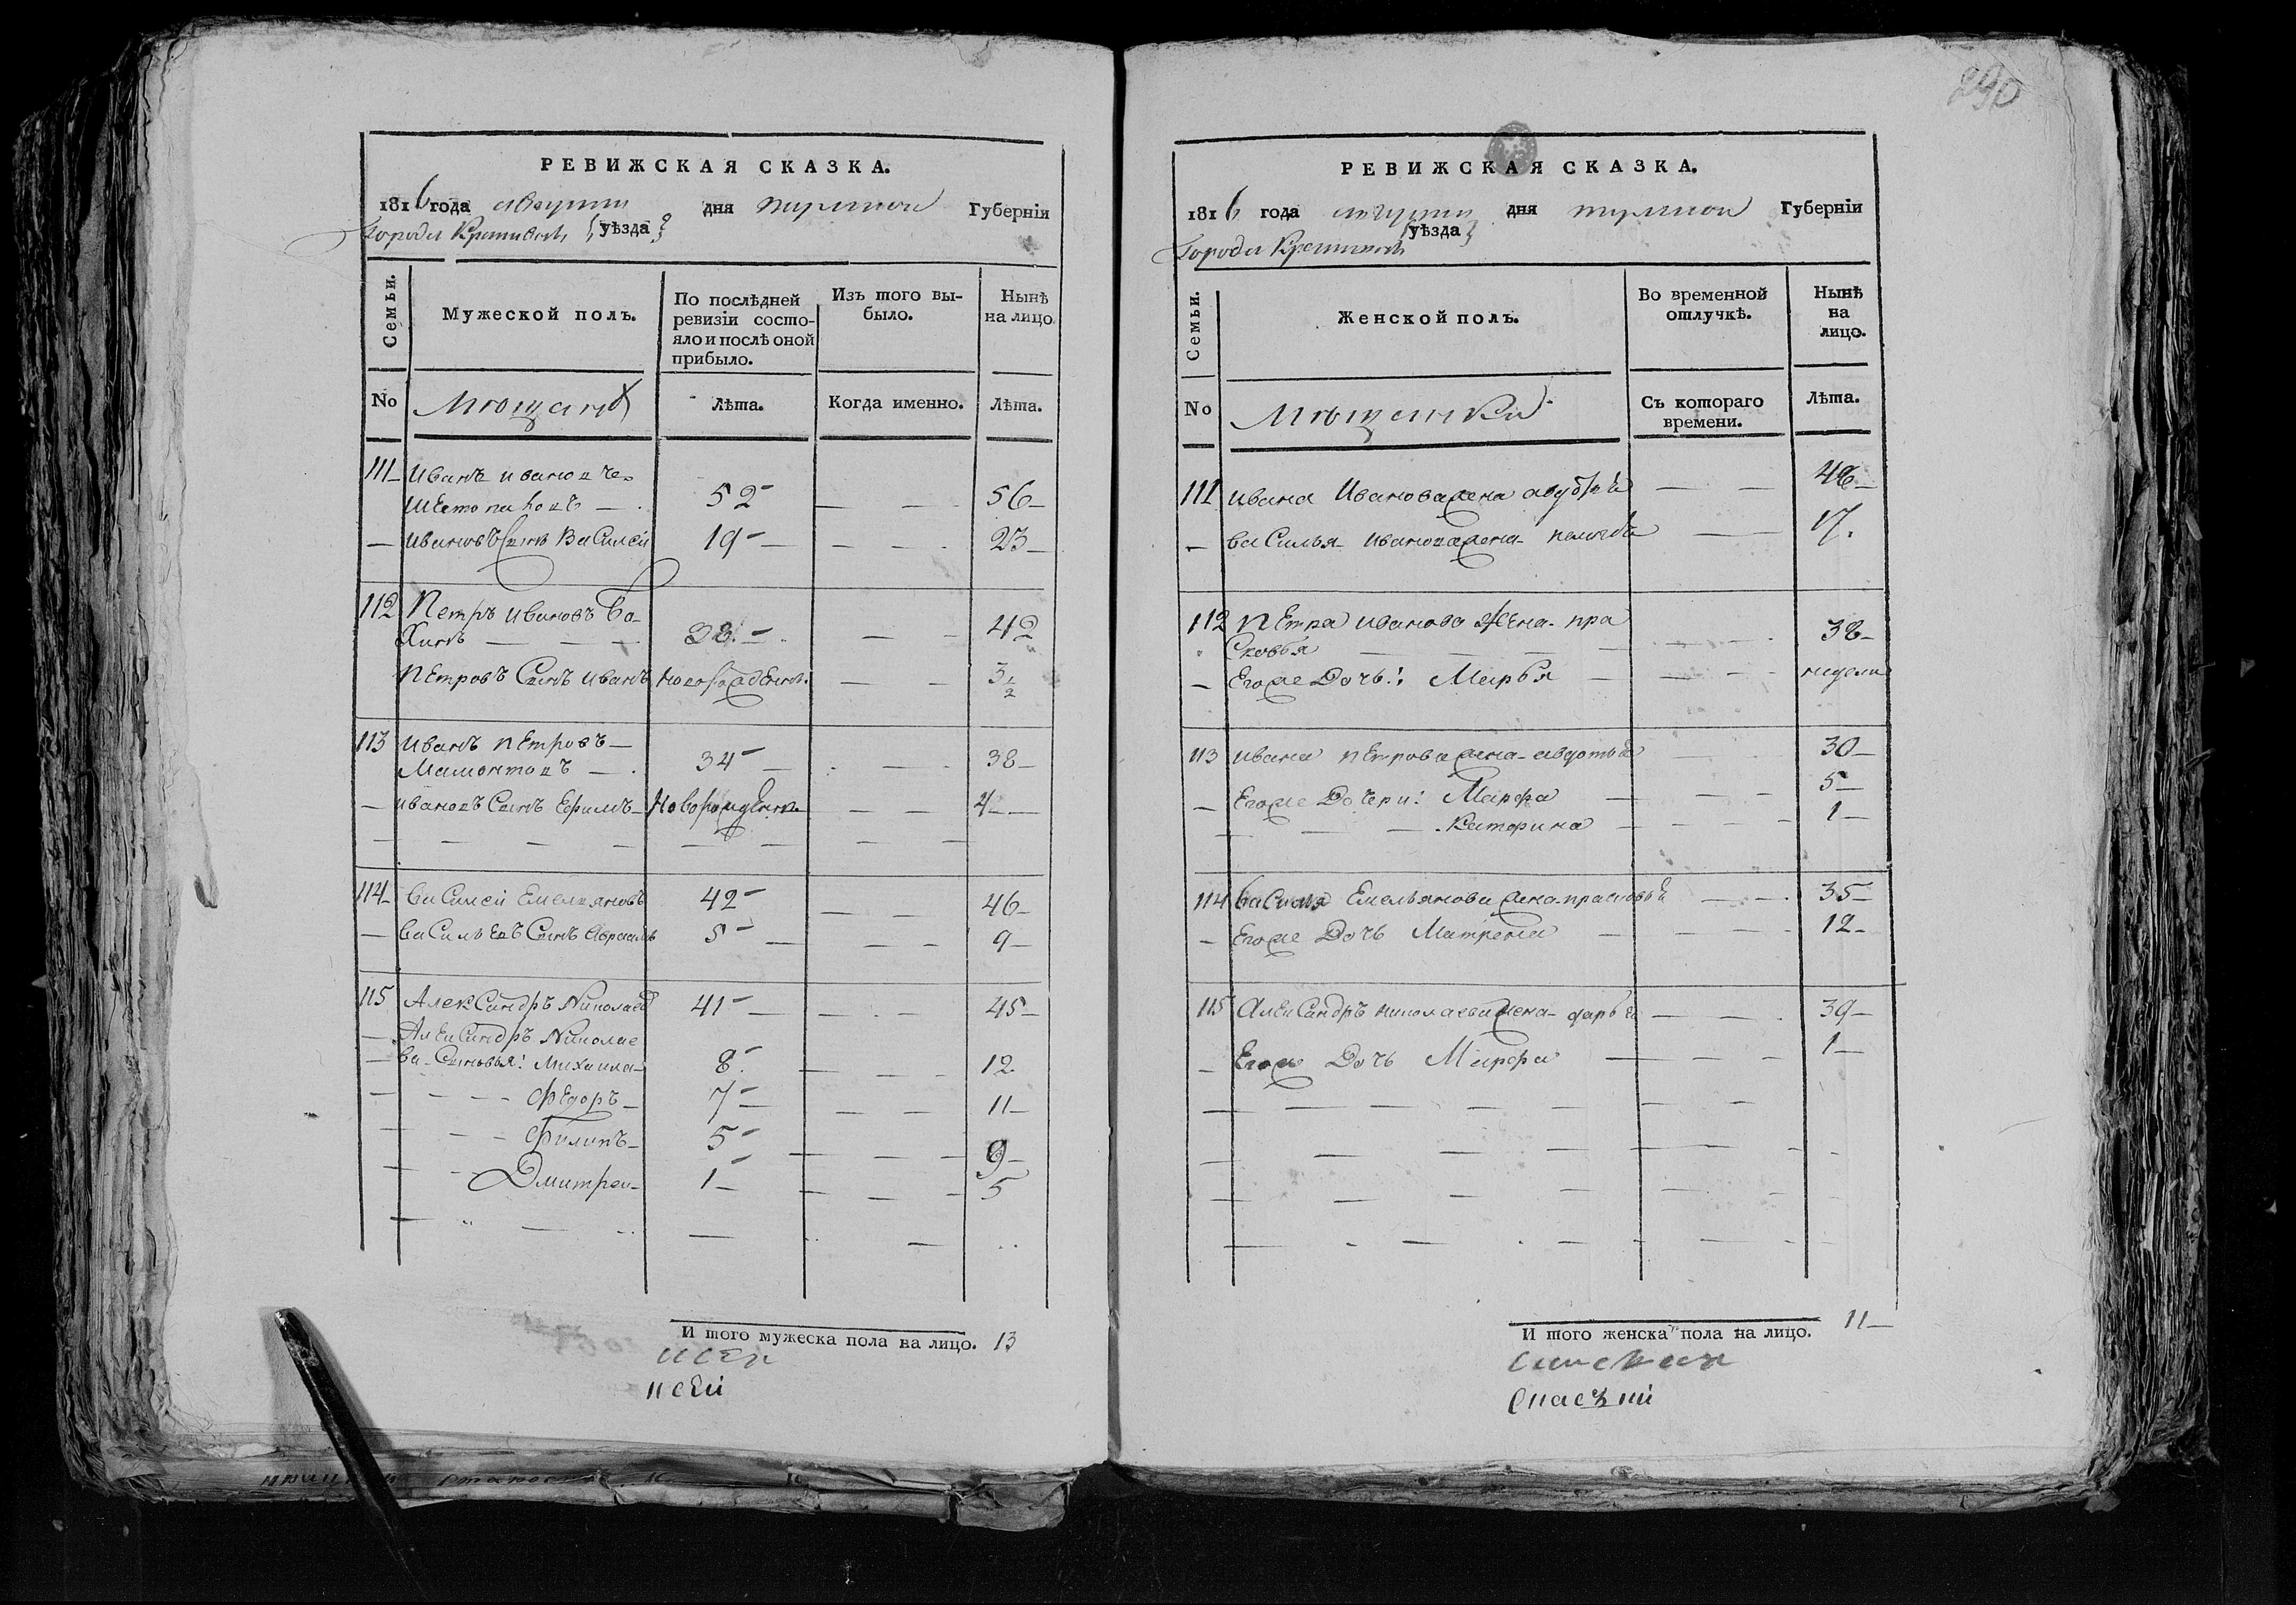 290
РЕВИЖСКАЯ СКАЗКА.
1816 года августа дня тульской Губерніи
Города Крапивны уѣзда
Семьи.
Мужеской полъ.
По послѣдней ревизіи состо-
яло и послѣ оной прибыло.
Изъ того вы-
было.
Нынѣ на лицо
No
Мѣщанъ
лѣта.
Когда именно.
Лѣта.
111 Иванъ Ивановъ Че-
шетниковъ 52 56
Ивановъ Сынъ Василей 19 23
112 Петръ Ивановъ Ба-
хинъ 38 42
Петровъ Сынъ Иванъ Новорожденъ. 3 1/2
113 Иванъ Петровъ
Мамонтовъ 34 38
Ивановъ Сынъ Ефимъ Новорожденъ 4
114 Василей Емельяновъ 42 46
Васильевъ Сынъ Авраамъ 5 9
115 Александръ Николаевъ 41 45
Александръ Николае
ва Сыновья: Михаила 8 12
Федоръ 7 11
Филипъ 5 9
Дмитрей 1 5
И того мужеска пола на лицо. 13
РЕВИЖСКАЯ СКАЗКА.
1816 года августа дня тульской Губерніи
уѣзда
Города Крапивны
Семьи.
Женской полъ.
Во временной
отлучкѣ.
Нынѣ
на
лицо.
No
Мѣщанки
Съ котораго
времени.
Лѣта.
111 Ивана Иванова жена авдотья 48
Василья Иванова жена пелагѣя 17.
112 Петра Иванова Жена пра
Сковья 38
Его же Дочь: Марья недели
113 Ивана Петрова жена авдотья 30
Его же Дочери: Марфа 5
Катерина 1
114 Василья Емельянова жена прасковья 35
Его же Дочь Матрена 12
115 Александръ Николаева жена дарья 39
Его же Дочь Марфа 1
И того женска пола на лицо. 11